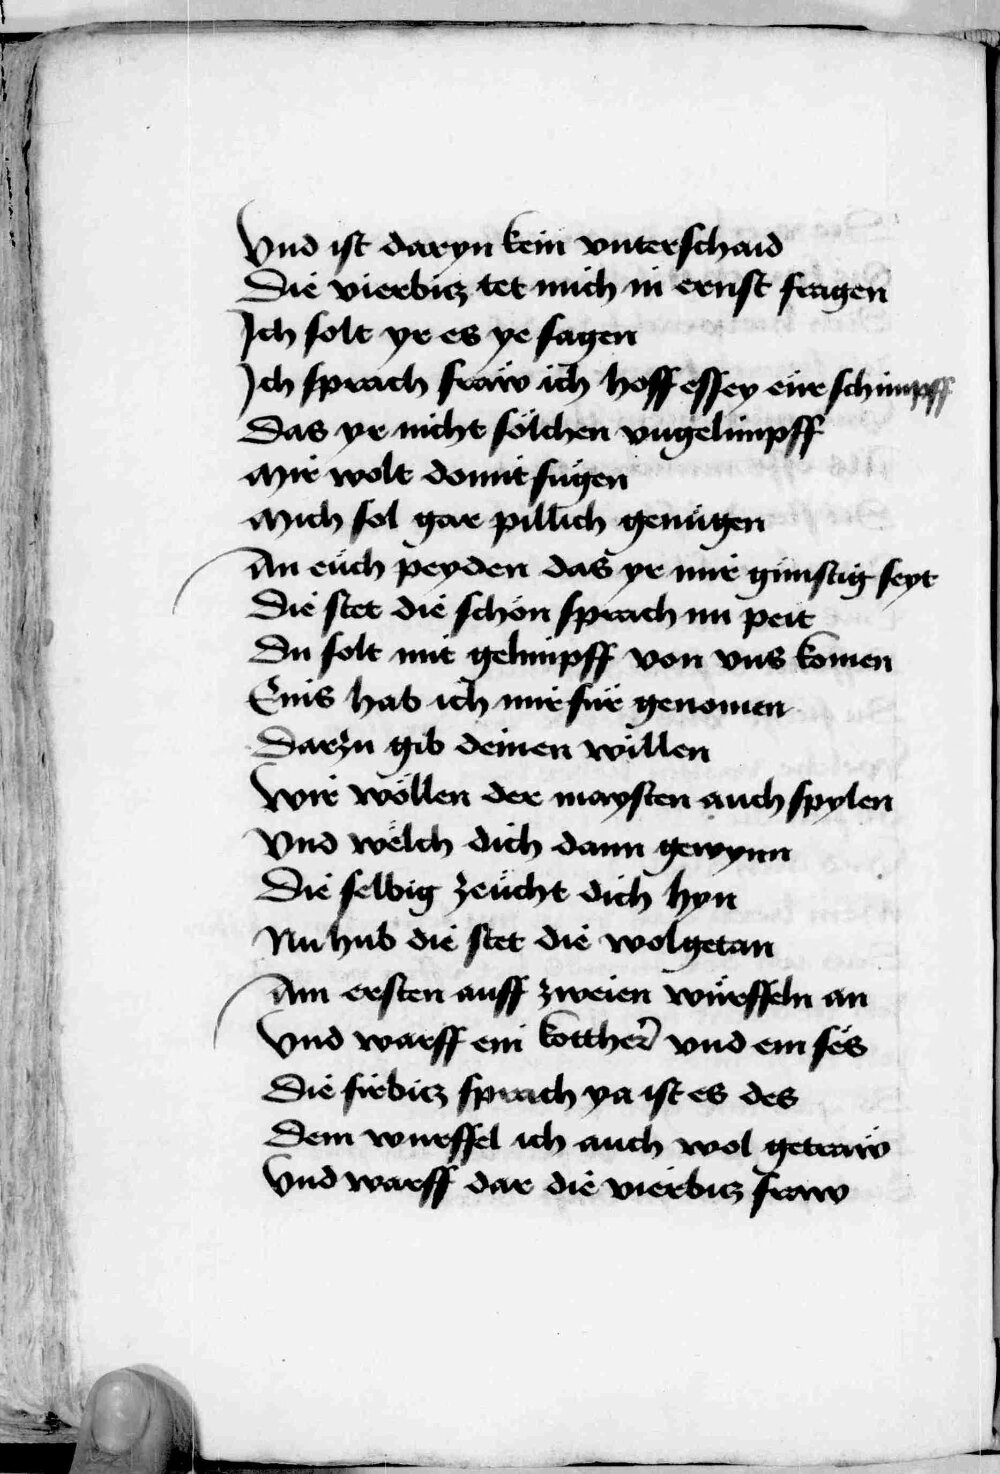 Vnd ist daryn kein vnterschaid
Die vierbicz tet mich in ernst fragen
Ich solt yr es ye sagen
Ich sprach fraw ich hoff es sey eur schimpff
Das yr nicht sölchen vngelimpff
Mir wolt domit fügen
Mich sol gar pillich genügen
An euch peyden das yr mir günstig seyt
Die stet die schön sprach nu peit
Du solt mit gelimpff von vns komen
Eins hab ich mir für genomen
Darzu gib deinen willen
Wir wöllen der maysten auch spylen
Vnd welch dich dann gewynn
Die selbig zeücht dich hyn
Nu hub die stet die wolgetan
Am ersten auff zweien würffeln an
Vnd warff ein kotther vnd ein ses
Die firbicz sprach ya ist es des
Dem wurffel ich auch wol getraw
Vnd warff dar die vierbicz fraw